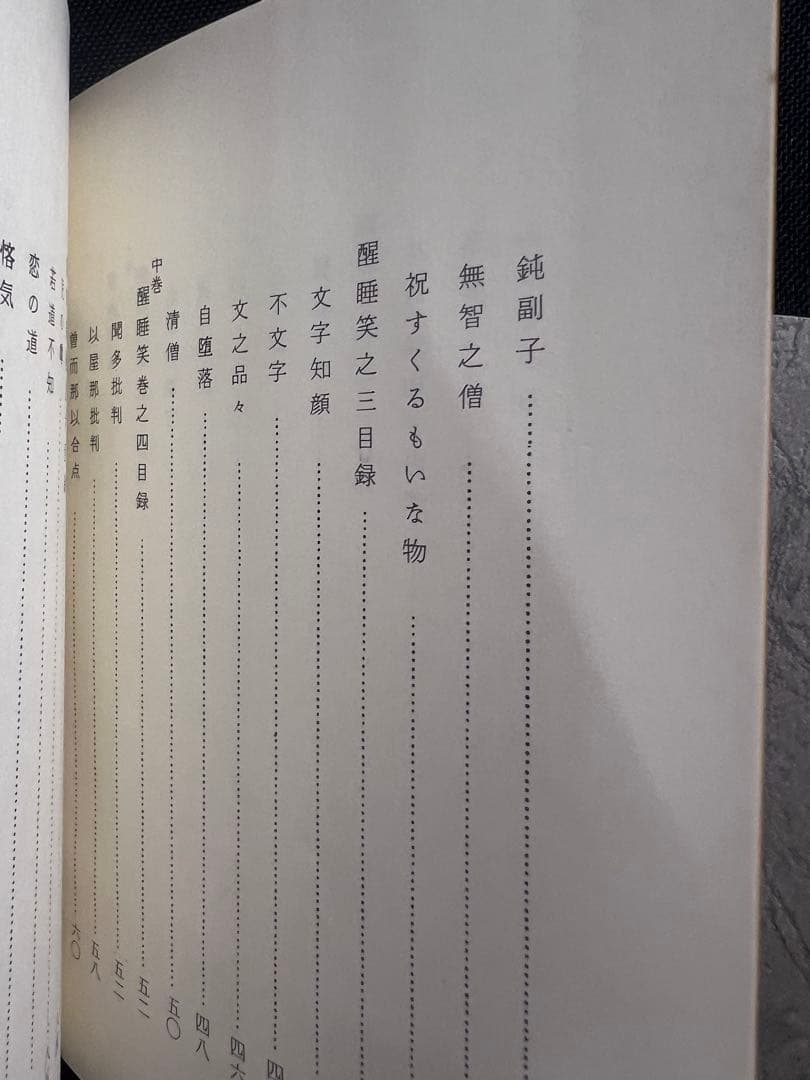 鈍副子
無智之僧
祝すくるもいな物
醒睡笑之三目録
文字知顔
不文字 四
文之品々 四六
自堕落 四八
清僧 五〇
中巻
醒睡笑巻之四目録 五二
聞多批判 五二
以屋那批判 五八
曽而那以合点 六〇
若道不知
恋の道
悋気